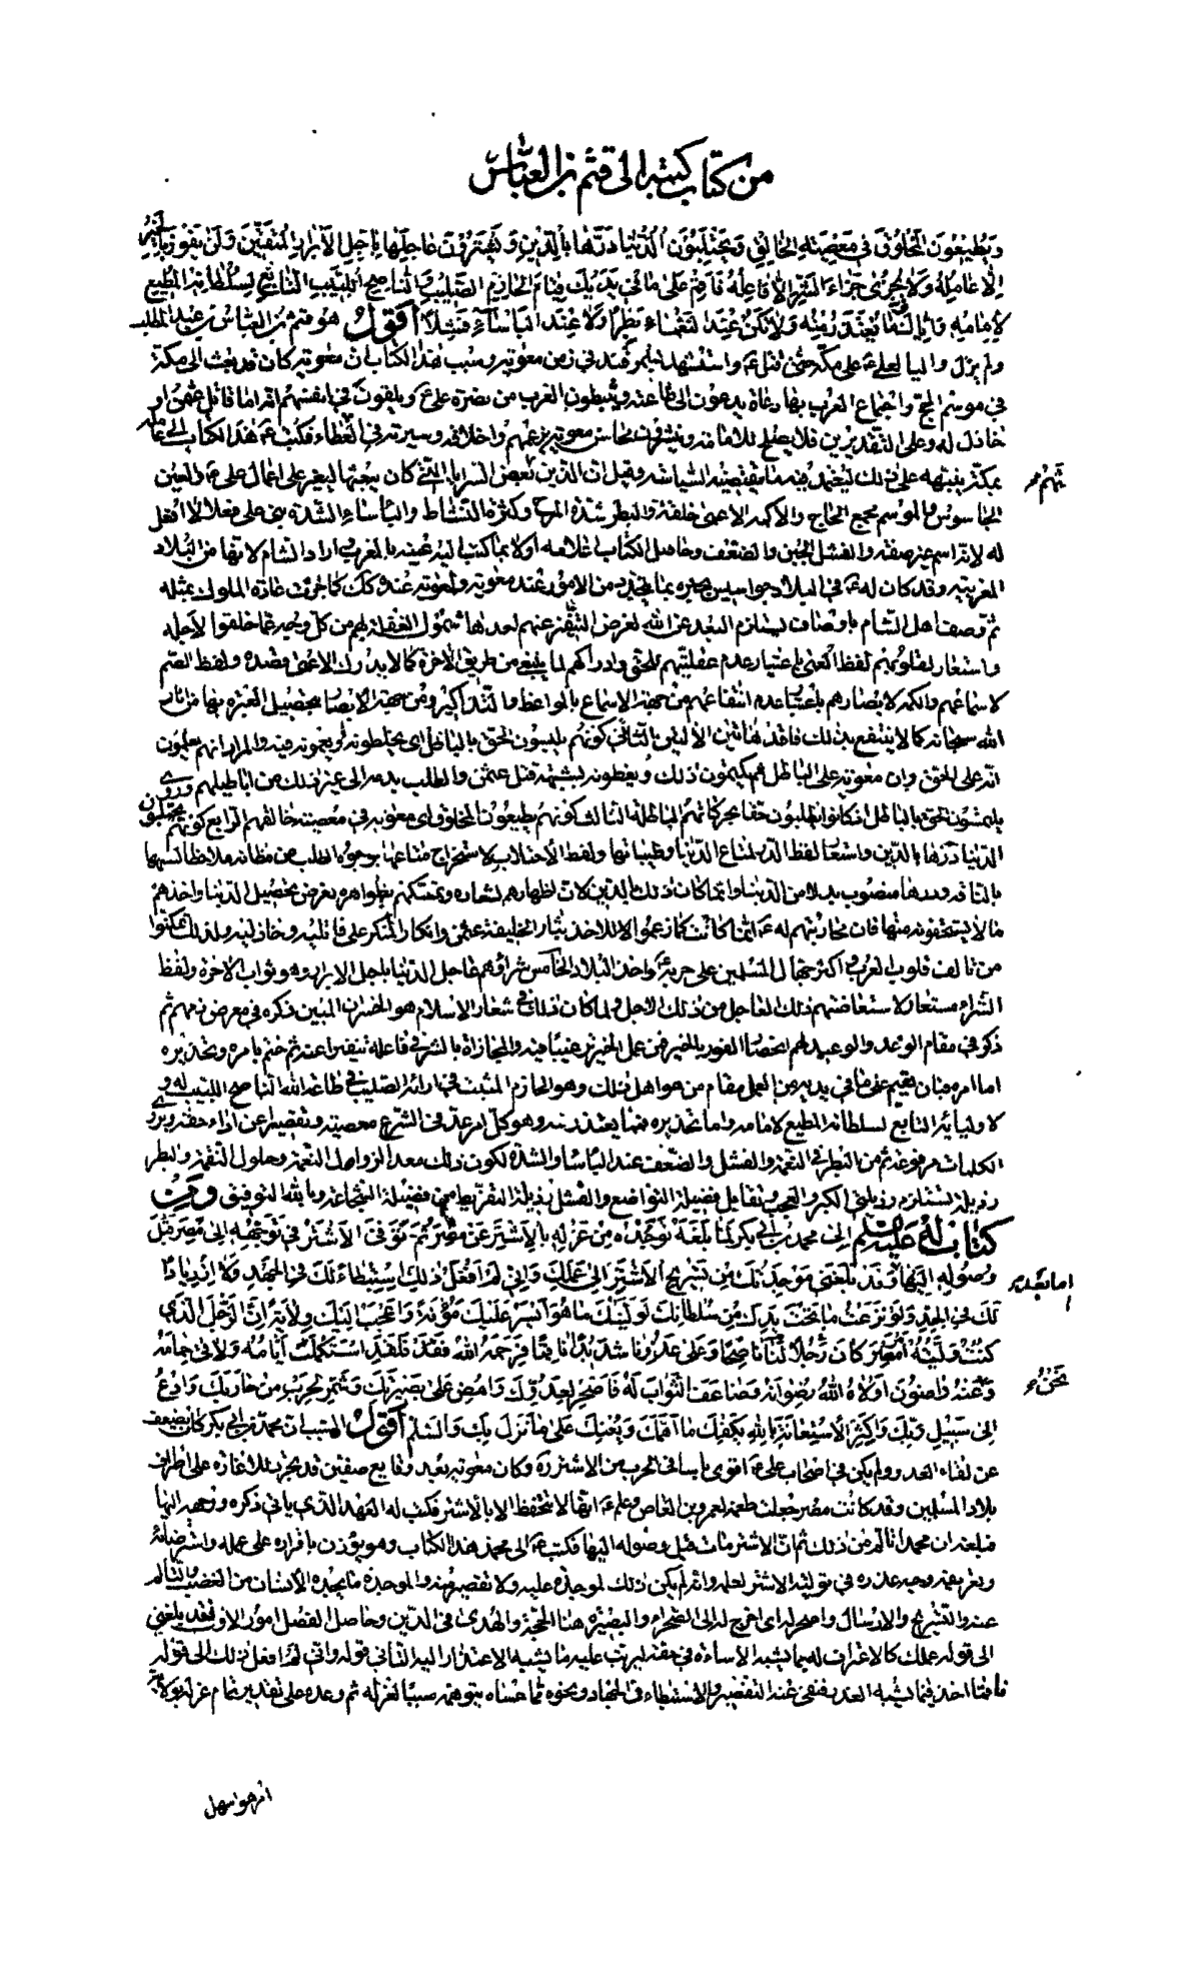 من كتاب كتبه الى قثم بن العباس
ويطيعون المخلوق في معصية الخالق ويحتلبون الدنيا درها بالدين ويشترون عاجلها باجل الابرار المتقين ولن يفوز بالخير
الا عامله ولا يجزى جزاء الشر الا فاعله فاقم على ما في يديك قيام الحازم الصليب والناصح اللبيب التابع لسلطانه المطيع
لامامه واياك وما يعتذر منه ولا تكن عند النعماء بطرا ولا عند الباساء فشلا اقول هو قثم بن العباس بن عبد المطلب
ولم يزل واليا لعلي ع على مكة حتى قتل ع واستشهد بسمرقند في زمن معوية وسبب هذا الكتاب ان معوية كان قد بعث الى مكة
في موسم الحج واجتماع العرب بها دعاة يدعون الى طاعته ويثبطون العرب من نصرة علي ع ويلقون في انفسهم انه اما قاتل عثمن او
خاذل له وعلى التقديرين فلا يصلح للامامة وينشرون محاسن معوية بزعمهم واخلاقه وسيرته في العطاء فكتب ع هذا الكتاب الى عامله
بمكة ينبهه على ذلك ليعتمد فيه بما يقتضيه السياسة وقيل ان الذين بعض السرايا التي كان يبعثها ليغير على اعمال علي ع والعين
الجاسوس والموسم مجمع الحاج والاكمه الاعمى خلقة والبطر شدة المرح وكثرة النشاط والباساء الشدة
المغربية وقد كان له ع في البلاد جواسيس
ثم وصف اهل الشام باوصاف يستلزم البعد عن الله لغرض التنفير عنهم احدها شمول الغفلة لهم من كل وجه عما خلقوا لاجله
واستعار لقلوبهم لفظ العمى باعتبار عدم عقليتهم للحق وادراكهم لما ينبغي من طريق الاخرة كما لا يدرك الاعمى قصده ولفظ الصم
لاسماعهم والكمه لابصارهم باعتبار عدم انتفاعهم من جهة الاسماع بالمواعظ والتذاكير ومن جهة الابصار بتحصيل العبرة بها من اثار
الله سبحانه كما لا ينتفع بذلك فاقد هاتين الالتين الثاني كونهم يلبسون الحق بالباطل اى يخلطونه ويعمونه فيه والمراد انهم يعلمون
انه على الحق وان معوية على الباطل ثم يكتمون ذلك ويغطونه بشبهة قتل عثمن والطلب بدمه الى غير ذلك من اباطيلهم
الثالث كونهم يطيعون المخلوق اى معوية في معصية خالقهم الرابع كونهم يحتلبون
الدنيا درها بالدين واستعار لفظ الدر لمتاع الدنيا وطيباتها ولفظ الاحتلاب لاستخراج متاعها بوجوه الطلب من مظانه ملاحظا لشبهها
بالناقة ودرها منصوب بدلا من الدنيا وانما كان ذلك بالدين لان اظهارهم شعاره وتمسكهم بظواهره لغرض تحصيل الدنيا واخذهم
ما لا يستحقونه منها فان محاربتهم له ع انما كانت كما زعموا للاخذ بثار الخليفة عثمن وانكار المنكر على قاتليه وخاذليه ولذلك تمكنوا
من تالف قلوب العرب واكثر جهال المسلمين على حربه ع واخذ البلاد الخامس شراؤهم عاجل الدنيا باجل الابرار وهو ثواب الاخرة ولفظ
الشراء مستعار لاستعاضتهم ذلك العاجل من ذلك الاجل ولما كان ذلك في شعار الاسلام هو الخسران المبين ذكره في معرض ذمهم ثم
ذكر في مقام الوعد والوعيد لهم انحصار الفوز بالخير فمن عمل الخير ترغيبا فيه والمجازاة بالشر في فاعله تنفيرا عنه ثم ختم بامره وتحذيره
اما امره فبان يقيم على ما في يديه من العمل مقام من هو اهل لذلك وهو الحازم المثبت في ارائه الصليب في طاعة الله الناصح اللبيب له و
لاوليائه التابع لسلطانه المطيع لامامه واما تحذيره فمما يعتذر منه وهو كل امر عد في الشرع معصية وتقصيرا عن اداء حقه
النعمة والفشل والضعف عند الباساء والشدة لكون ذلك معدا لزوال النعمة وحلول النقمة والبطر
رذيلة تستلزم رذيلتي الكبر والعجب وتقابل فضيلة التواضع والفشل رذيلة التفريط من فضيلة الشجاعة وبالله التوفيق ومن
كتاب له عليه السلم الى محمد بن ابي بكر لما بلغه توجده من عزله بالاشتر عن مصر ثم توفى الاشتر في توجهه الى مصر قبل
وصوله اليها وقد بلغني موجدتك من تسريح الاشتر الى عملك واني لم افعل ذلك استبطاء لك في الجهد ولا ازديادا
اما بعد
لك في الجد ولو نزعت ما تحت يدك من سلطانك لوليتك ما هو ايسر عليك مؤنة واعجب اليك ولاية ان الرجل الذي
كنت وليته امر مصر كان رجلا لنا ناصحا وعلى عدونا شديدا ناقما فرحمه الله فلقد استكملت ايامه ولاقى حمامه
ونحن عنه راضون اولاه الله رضوانه وضاعف الثواب له فاصحر لعدوك وامض على بصيرتك وشمر لحرب من حاربك وادع
الى سبيل ربك واكثر الاستعانة بالله يكفك ما اهمك ويعنك على ما نزل بك والسلم اقول السبب ان محمد بن ابي بكر كان يضعف
عن لقاء العدو ولم يكن في اصحاب علي ع اقوى باسا في الحرب من الاشتر ره وكان معوية بعد وقايع صفين قد تجرد للاغارة على اطراف
بلاد المسلمين وقد كانت مصر جعلت طعمة لعمرو بن العاص وعلم ع انها لا تتحفظ الا بالاشتر فكتب له العهد الذي ياتي ذكره ووجهه اليها
فبلغه ان محمدا تالم من ذلك ثم ان الاشتر مات قبل وصوله اليها فكتب ع الى محمد هذا الكتاب وهو يؤذن باقراره على عمله واسترضائه
وتعريفه وجه عذره في تولية الاشتر لعمله وانه لم يكن ذلك لموجدة عليه ولا تقصير منه والموجدة ما يجده الانسان من الغضب والتالم
عنه والتسريح والارسال واصحر له اى اخرج له الى الصحراء والبصيرة هنا الحجة والهدى في الدين وحاصل الفصل امور الاول فقد بلغني
الى قوله عملك كالاعتراف له بما يشبه الاساءة في حقه ليرتب عليه ما يشبه الاعتذار اليه الثاني قوله واني لم افعل ذلك الى قوله
ناقما اخذ فيما يشبه العذر فنفى عنه التقصير والاستبطاء في الجهاد ونحوه مما عساه يتوهمه سببا لعزله ثم وعده على تقدير تمام عزله بولاية
امر هو اسهل